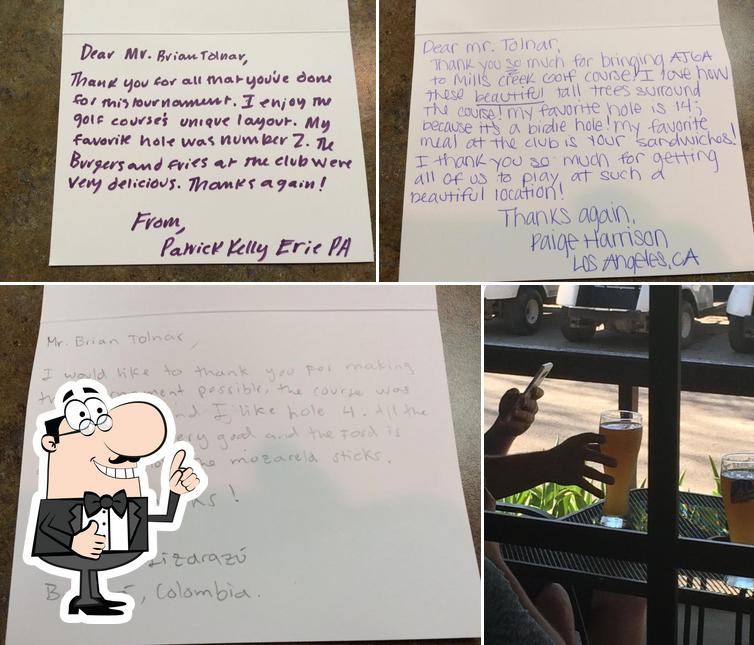 Dear Mr. Brian Tolnar,
Thank you for all that you've done
for this tournament. I enjoy the
golf course's unique layout. My
favorite hole was number 2. The
Burgers and fries at the club were
very delicious. Thanks again!
From,
Patrick Kelly Erie PA
Dear mr. Tolnar,
Thank you so much for bringing AJGA
to Mills creek Golf course! I love how
these beautiful tall trees surround
the course! my favorite hole is 14;
because it's a birdie hole! my favorite
meal at the club is your sandwiches!
I thank you so much for getting
all of us to play at such a
beautiful location!
Thanks again,
Paige Harrison
Los Angeles, CA
Mr. Brian Tolnar,
I would like to thank you for making
possible, the course was
and I like hole 4. All the
very good and the food is
mozarela sticks.
Lizarazú
, Colombia.